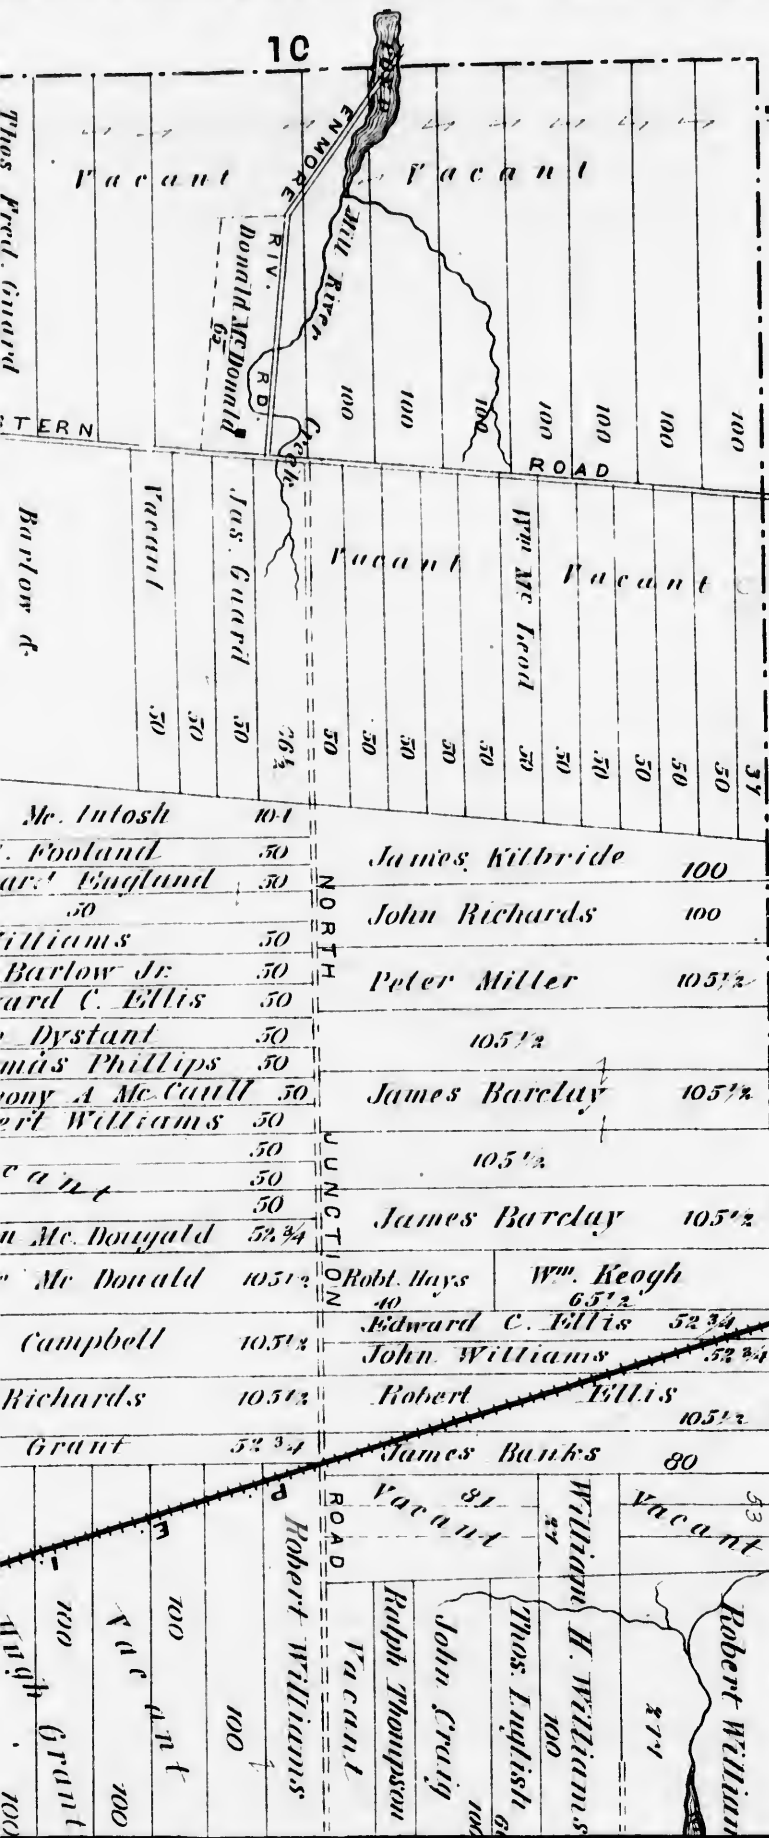 10
POND
Thos Fred. Guard
Vacant
ENMORE
RIV.
RD.
Mill River
Vacant
Donald McDonald
62
Creek
100
100
100
100
100
100
100
STERN
ROAD
Barlow &
Vacant
Jas. Guard
Vacant
Wm Mc Leod
Vacant
50
50
50
50
50
50
50
50
50
50
50
50
50
50
Mc. Intosh
Fooland 50
England 50
50
Williams 50
Barlow Jr. 50
ard C. Ellis 50
Dystant 50
mas Phillips 50
ony A Mc. Caull 50
ert Williams 50
50
cant 50
50
Mc. Dougald 52 3/4
Mc Donald 105 1/2
Campbell 105 1/2
Richards 105 1/2
Grant 52 3/4
NORTH
JUNCTION
ROAD
James Kilbride 100
John Richards 100
Peter Miller 105 1/2
105 1/2
James Barclay 105 1/2
105 1/2
James Barclay 105 1/2
Robt. Hays
40
Wm. Keogh
65 1/2
Edward C. Ellis 52 3/4
John Williams 52 3/4
Robert Ellis
105 1/2
James Banks 80
P
E
I
Vacant 81
William H. Williams
100
Vacant
53
Hugh Grant
100
100
Vacant
100
100
100
Robert Williams
Vacant
Ralph Thompson
John Craig
100
Thos. English
Robert William
277